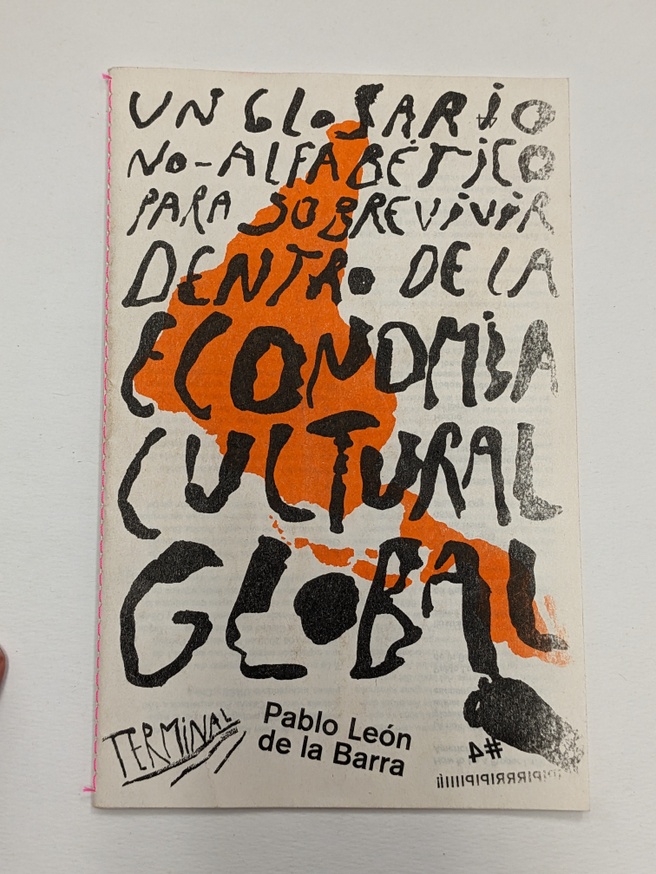 UN GLOSARIO
NO-ALFABÉTICO
PARA SOBREVIVIR
DENTRO DE LA
ECONOMÍA
CULTURAL
GLOBAL
TERMINAL
Pablo León
de la Barra
#4